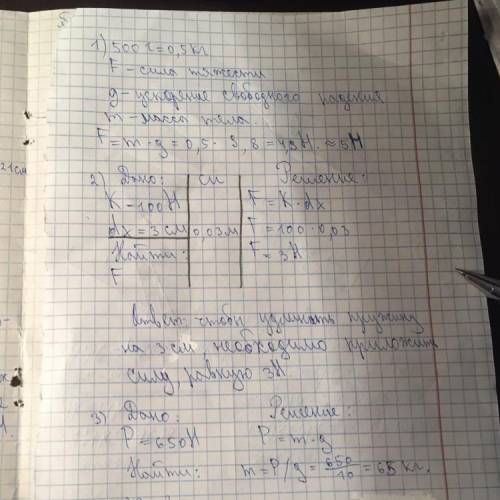 1) 500 г = 0,5 кг
F - сила тяжести
g - ускорение свободного падения
m - масса тела.
F = m · g = 0,5 · 9,8 = 4,9 Н. ≈ 5 Н
2) Дано: СИ Решение:
K - 100 Н F = K · dx
dx = 3 см 0,03 м F = 100 · 0,03
Найти: F = 3 Н
F
Ответ: чтобы удлинить пружину
на 3 см необходимо приложить
силу, равную 3Н
3) Дано: Решение:
P = 650 Н P = m · g
Найти: m = P/g = 650/10 = 65 кг.